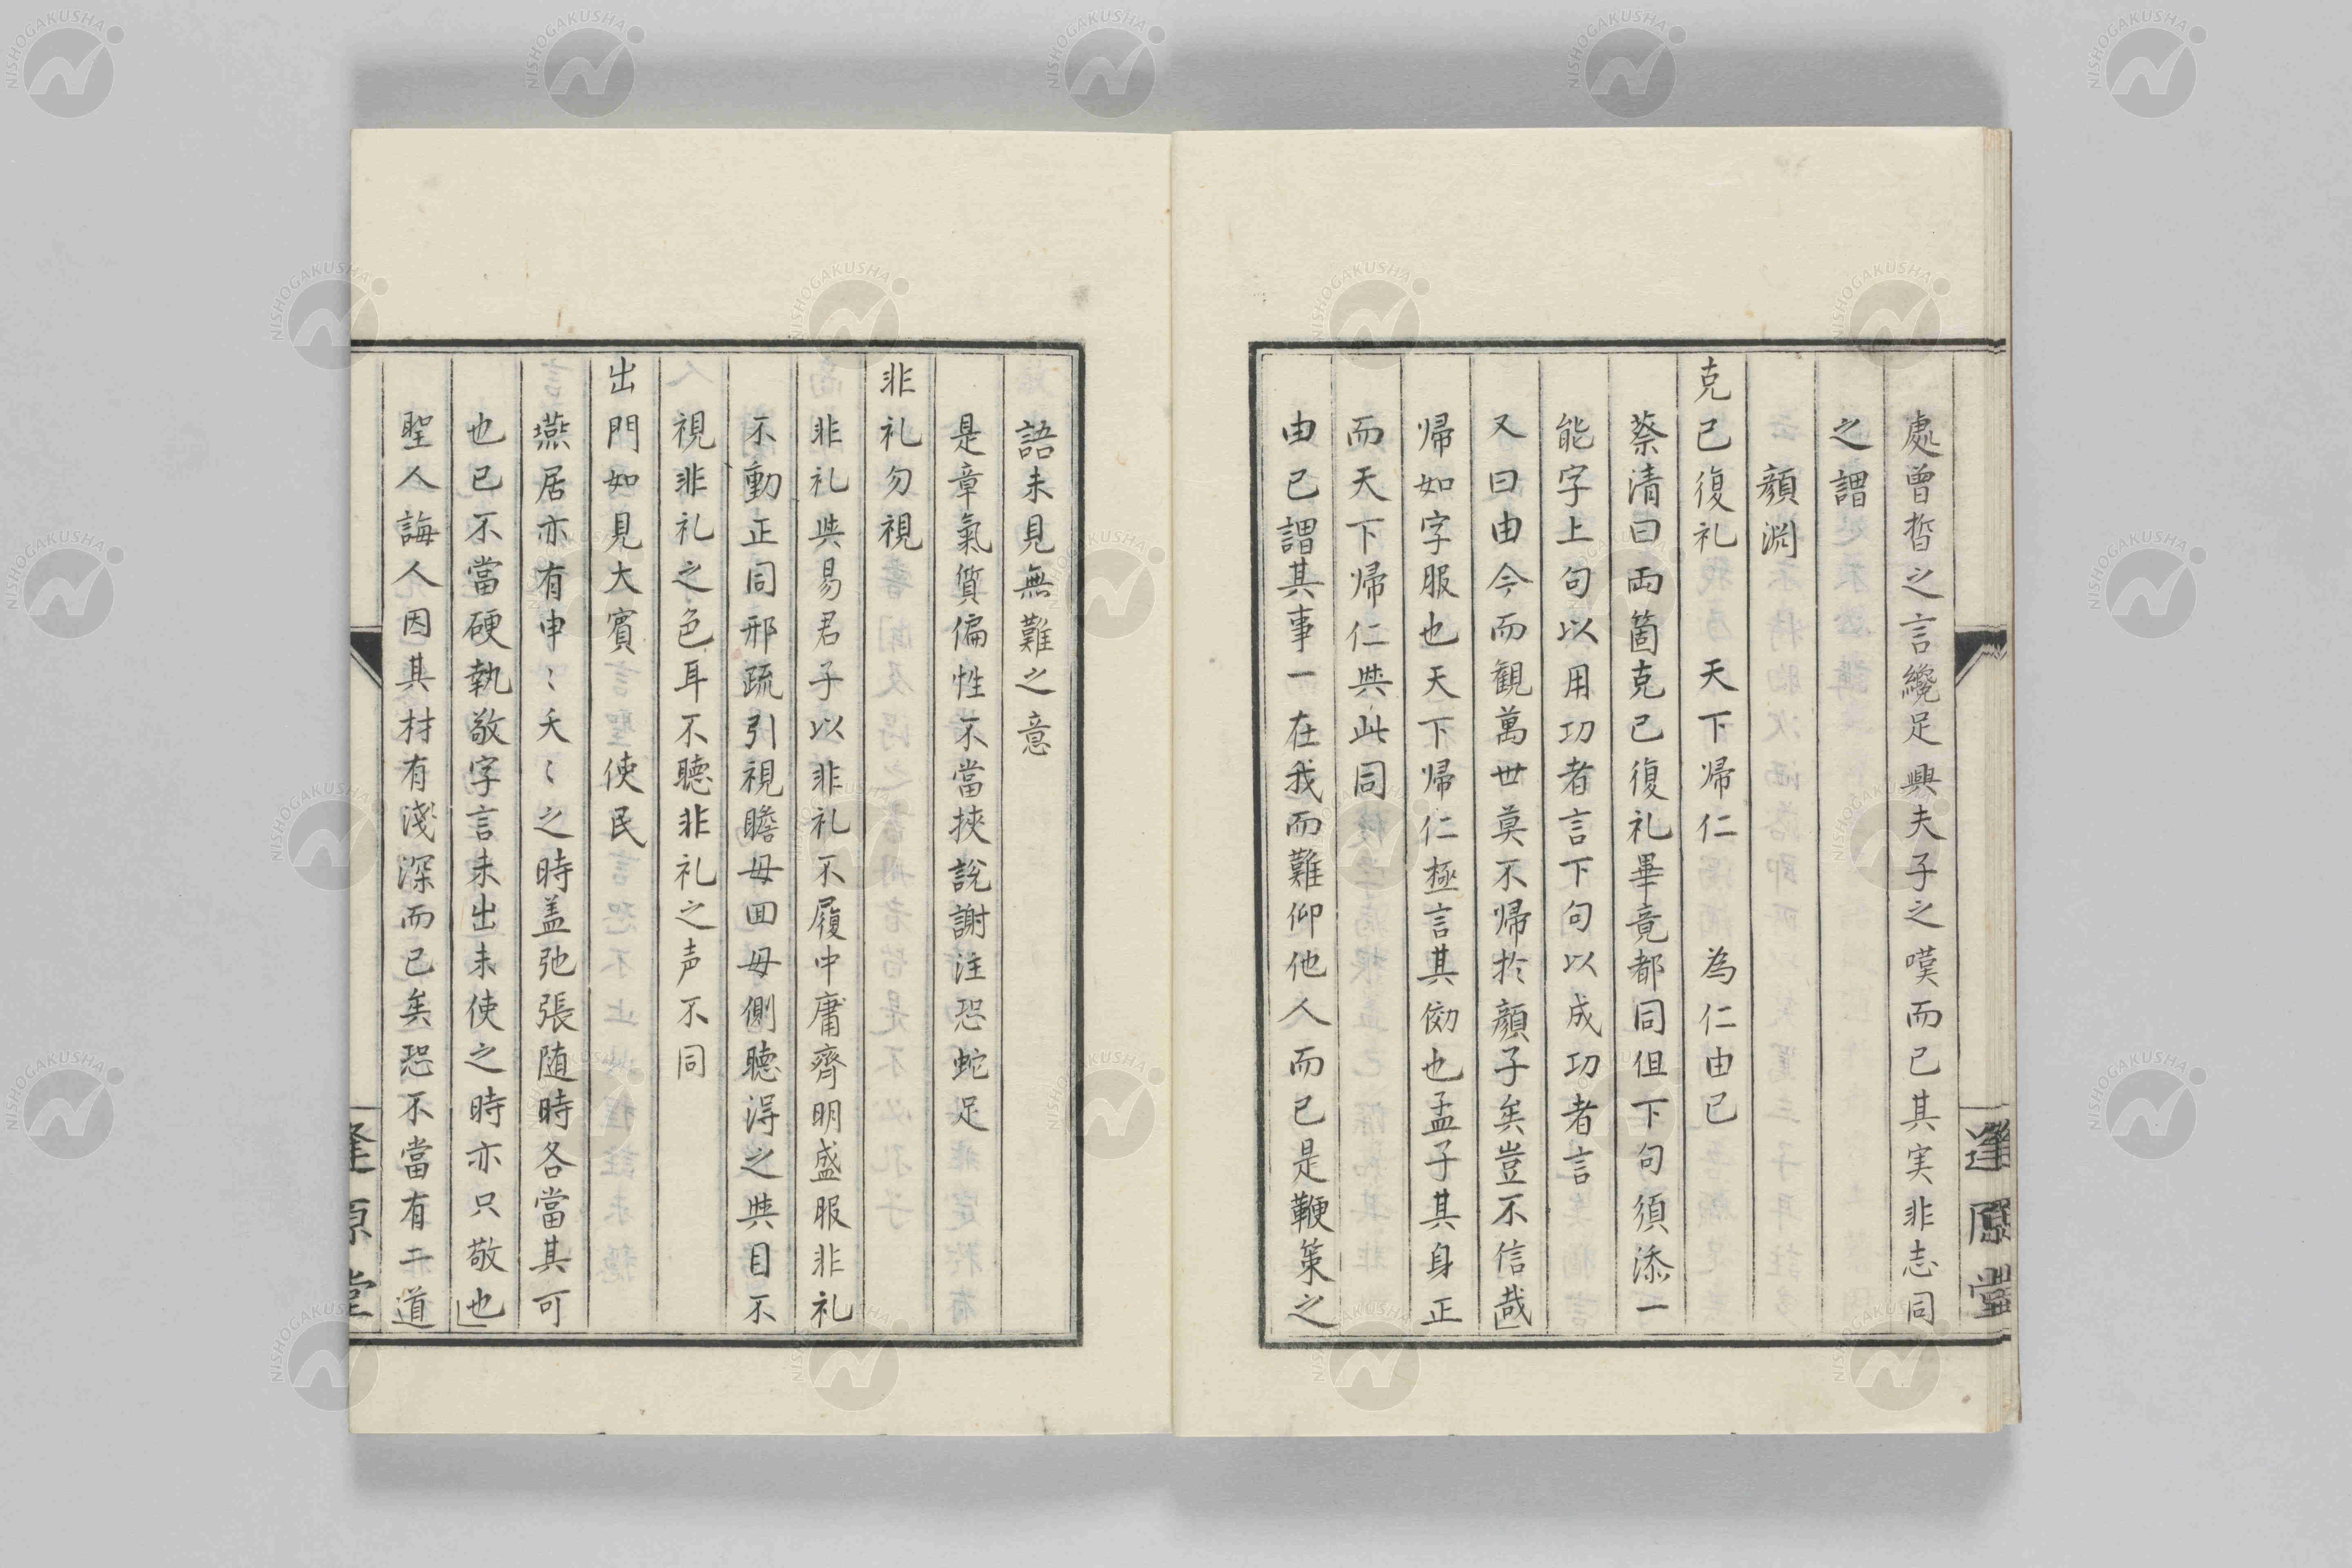 處曾晳之言纔足興夫子之嘆而已其実非志同
之謂
顔淵
克己復礼 天下帰仁 為仁由己
蔡清曰両箇克己復礼畢竟都同但下句須添一
能字上句以用功者言下句以成功者言
又曰由今而観萬世莫不帰於顔子矣豈不信哉
帰如字服也天下帰仁極言其効也孟子其身正
而天下帰仁與此同
由己謂其事一在我而難仰他人而已是鞭策之
逢原堂
語未見無難之意
是章氣質偏性不當挾說謝注恐蛇足
非礼勿視
非礼與易君子以非礼不履中庸齊明盛服非礼
不動正同邢疏引視瞻毋回毋側聽淂之與目不
視非礼之色耳不聴非礼之声不同
出門如見大賓 使民
燕居亦有申〻夭〻之時盖弛張随時各當其可
也已不當硬執敬字言未出未使之時亦只敬也
聖人誨人因其材有淺深而已矣恐不當有二道
逢原堂
NISHOGAKUSHA